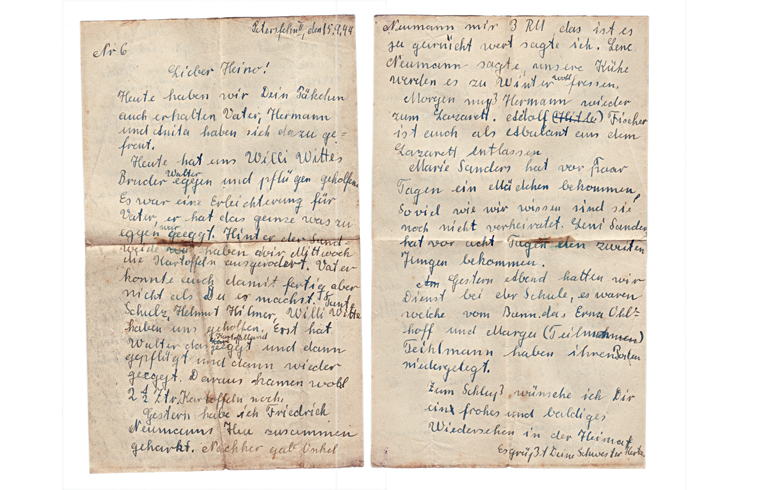 Petersfehn II, den 15.9.44
Nr 6
Lieber Heino!
Heute haben wir Dein Päkchen
auch erhalten Vater, Hermann
und Anita haben sich dazu ge-
freut.
Heute hat uns Willi Wittes
Bruder Walter eggen und pflügen geholfen
Es war eine Erleichterung für
Vater, er hat das ganze was zu
eggen war geeggt. Hinter der Sand-
weide haben wir Mittwoch
die Kartoffeln ausgerodert. Vater
konnte auch damit fertig aber
nicht als Du es machst. Tante
Schulz, Helmut Hilmer, Willi Witte
haben uns geholfen. Erst hat
Walter das Kartoffelland geeggt und dann
gepflügt und dann wieder
geeggt. Daraus kamen wohl
2 1/2 Ztr. Kartoffeln noch.
Gestern habe ich Friedrich
Neumanns Heu zusammen
geharkt. Nachher gab Onkel
Neumann mir 3 RM das ist es
zu garnicht wert sagte ich. Lene
Neumann sagte, unsere Kühe
werden es zu Winter wohl fressen.
Morgen muß Hermann wieder
zum Lazarett. Adolf (Hitle) Fischer
ist auch als Ambulant aus dem
Lazarett entlassen
Marie Sanders hat vor paar
Tagen ein Mädchen bekommen,
Soviel wie wir wissen sind sie
noch nicht verheiratet. Leni Sander
hat vor acht Tagen den zweiten
Jungen bekommen.
Gestern Abend hatten wir
Dienst bei der Schule, es waren
welche vom Bann. das Erna Ohl-
hoff und Marga (Teilmahmen)
Teihlmann haben ihren Boden
niedergelegt.
Zum Schluß wünsche ich Dir
ein frohes und baldiges
Wiedersehen in der Heimat
Es grüßt Deine Schwester Herta